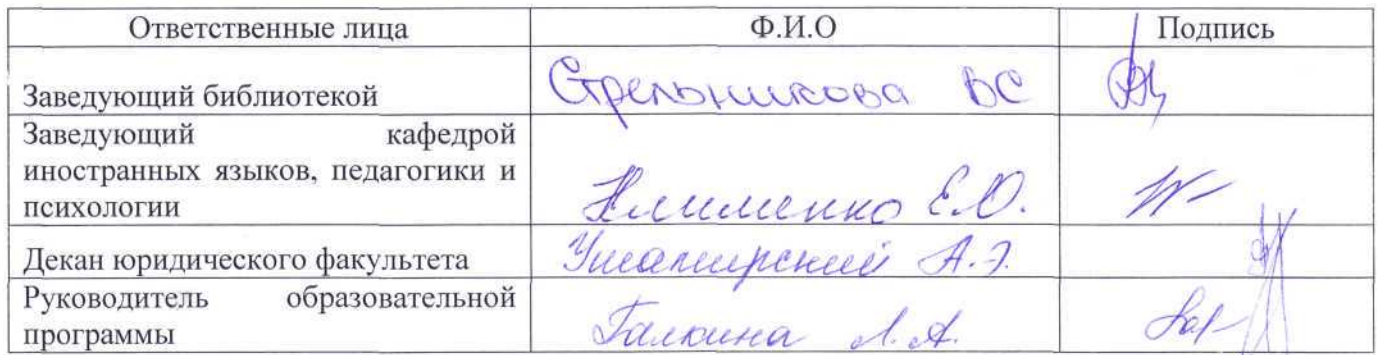 Ответственные лица Ф.И.О Подпись
Заведующий библиотекой Стрельникова ВС
Заведующий кафедрой
иностранных языков, педагогики и
психологии Клименко Е.Ю.
Декан юридического факультета Ушамирский А.Э.
Руководитель образовательной
программы Галкина Л.А.